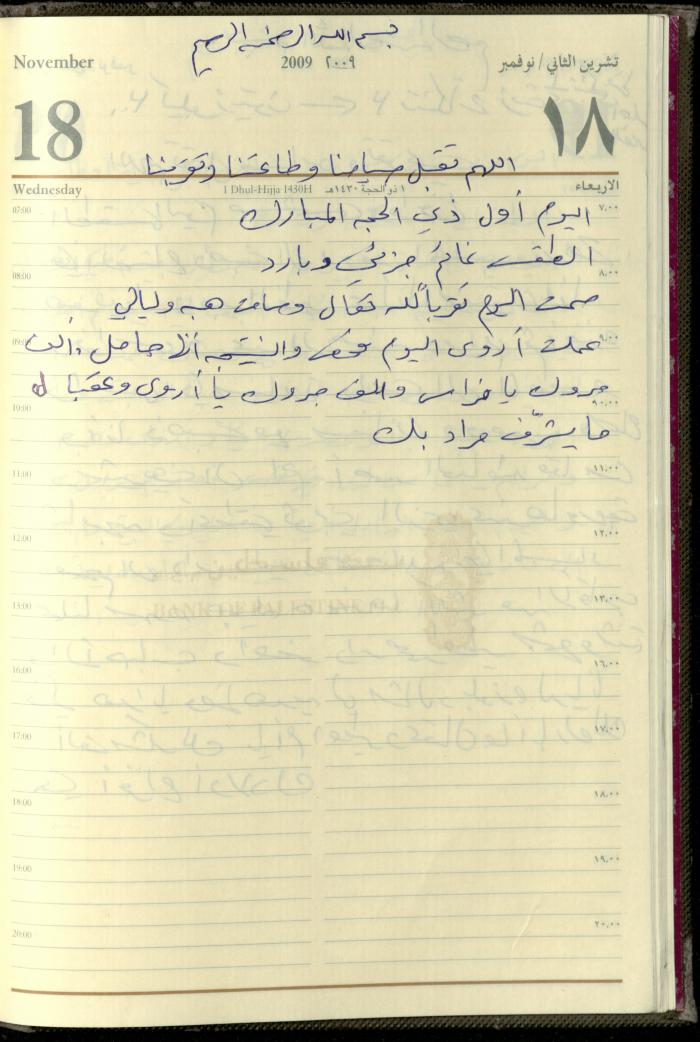 بسم الله الرحمن الرحيم
November
2009 ٢٠٠٩
تشرين الثاني / نوفمبر
18
١٨
اللهم تقبل صيامنا وطاعتنا وتقربنا
Wednesday
1 Dhul-Hijja 1430H ١ ذو الحجة ١٤٣٠هـ
الاربعاء
07:00 ٧,٠٠
اليوم أول ذي الحجه المبارك
الطقس غائم جزئي وبارد
08:00 ٨,٠٠
صمت اليوم تقرباً لله تعالى وصامت هبه وليالي
09:00 ٩,٠٠
عملت أروى اليوم فحص والنتيجه أنها حامل, الف
مبروك يا فراس والف مبروك يا أروى وعقبال
10:00 ١٠,٠٠
ما يشرّف مراد بك
11:00 ١١,٠٠
12:00 ١٢,٠٠
13:00 ١٣,٠٠
16:00 ١٦,٠٠
17:00 ١٧,٠٠
18:00 ١٨,٠٠
19:00 ١٩,٠٠
20:00 ٢٠,٠٠